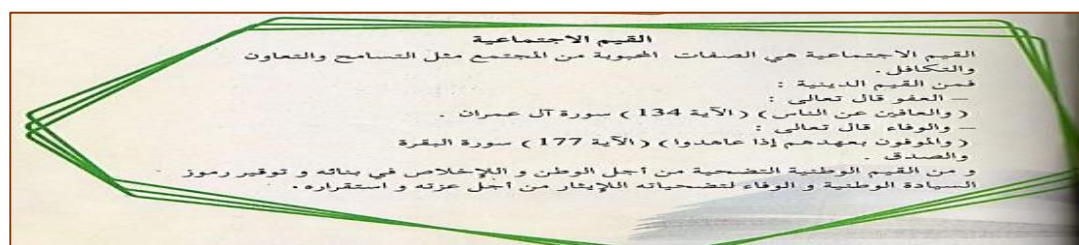 القيم الاجتماعية
القيم الاجتماعية هي الصفات المحبوبة من المجتمع مثل التسامح والتعاون
والتكافل .
فمن القيم الدينية :
– العفو قال تعالى :
( والعافين عن الناس ) ( الآية 134 ) سورة آل عمران .
– والوفاء قال تعالى :
( والموفون بعهدهم إذا عاهدوا ) ( الآية 177 ) سورة البقرة
والصدق .
و من القيم الوطنية التضحية من أجل الوطن و اللإخلاص في بنائه و توقير رموز
السيادة الوطنية و الوفاء لتضحياته اللإيثار من أجل عزته و استقراره .